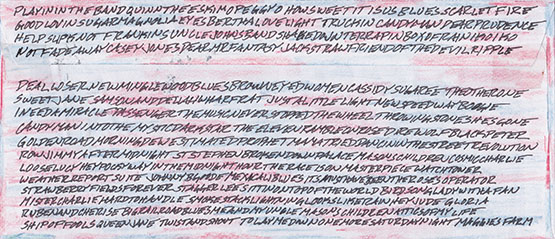 PLAYININTHEBANDQUINNTHEESKIMOPEGGYOHOWSWEETITISUSBLUESSCARLETFIRE
GOODLOVINSUGARMAGNOLIAEYESBERTHALOVELIGHTTRUCKINCANDYMANDEARPRUDENCE
HELPSLIPKNOTFRANKLINSUNCLEJOHNSBANDSHAKEDOWNTERRAPINBOXOFRAINIKOIKO
NOTFADEAWAYCASEYJONESDEARMRFANTASYJACKSTRAWFRIENDOFTHEDEVILRIPPLE
DEALLOSERNEWMINGLEWOODBLUESBROWNEYEDWOMENCASSIDYSUGAREETHEOTHERONE
SWEETJANESAMSONANDDELILAHWHARFRATJUSTALITTLELIGHTNEWSPEEDWAYBOOGIE
INEEDAMIRACLEPASSENGERTHEMUSICNEVERSTOPPEDTHEWHEELTHROWINGSTONESHESGONE
CANDYMANINTOTHEMYSTICDARKSTARTHEELEVENRAMBLEONROSEDIREWOLFBLACKPETER
GOLDENROADMORNINGDEWESTIMATEDPROPHETMAMATRIEDDANCININTHESTREETREVOLUTION
ROWJIMMYAFTERMIDNIGHTSTSTEPHENBROKEDOWNPALACEMASONSCHILDRENCOSMICCHARLIE
LOOSELUCYHEYPOCKYWAYINTHEMIDNIGHTHOURTHERACEISONMASTERPIECEWATCHTOWER
WEATHERREPORTSUITEJOHNNYBGOODEMEXICALIBLUESITSALLTOOMUCHTHEROSESOPERATOR
STRAWBERRYFIELDSFOREVERSTAGGERLEESITTINONTOPOFTHEWORLDBIRDSONGLADYWITHAFAN
MISTERCHARLIEHARDTOHANDLESMOKESTACKLIGHTNINGLOOKSLIKERAINHEYJUDEGLORIA
RUBENANDCHERISEBIGRAILROADBLUESMEANDMYUNCLEMASONSCHILDRENATTICSOFMYLIFE
SHIPOFFOOLSQUEENJANETWISTANDSHOUTTOLAYMEDOWNONEMORESATURDAYNIGHTMAGGIESFARM